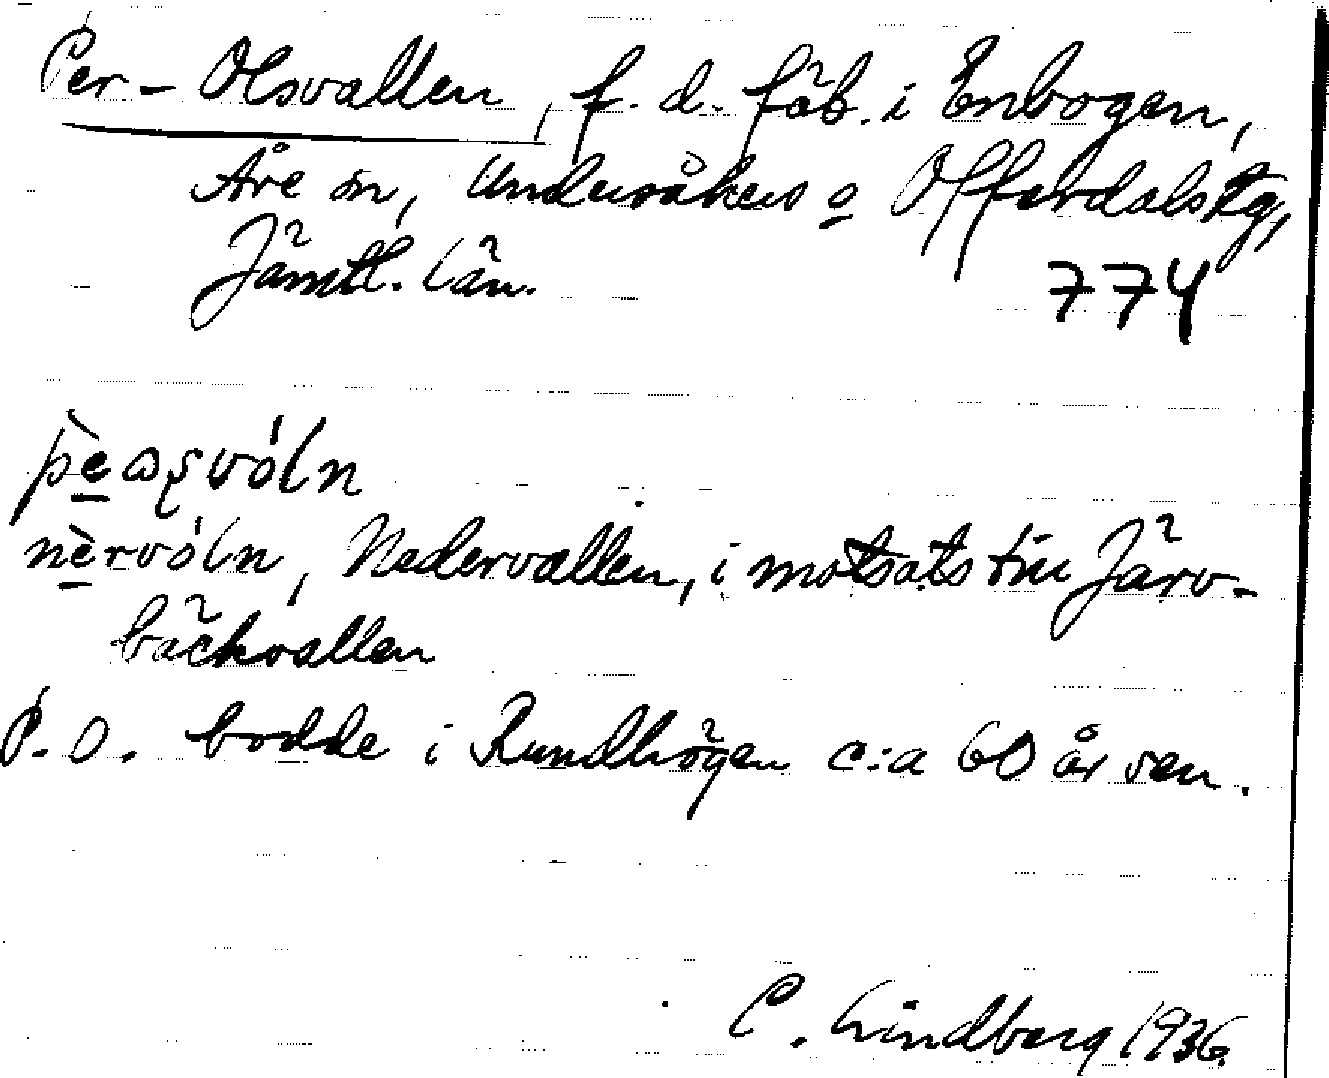 Per-Olsvallen, f. d. fäb. i Enbogen,
Åre sn, Undersåkers o Offerdals tg,
Jämtl. län.
774
nèrvóln, Nedervallen, i motsats till Järv-
bäckvallen
P. O. bodde i Rundhögen c:a 60 år sen.
C. Lindberg 1936.